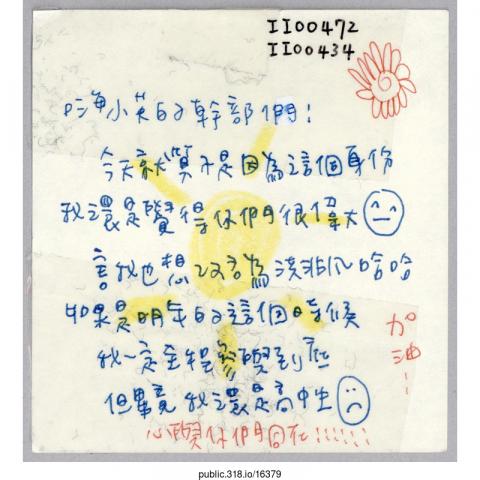 II00472
II00434
嗨小英的幹部們！
今天就算不是因為這個身份
我還是覺得你們很偉大
害我也想改当為洪非凡哈哈
如果是明年的這個時候
我一定全程參與到底
但畢竟我還是高中生
加油！
心與你們同在！！！！！！
public.318.io/16379